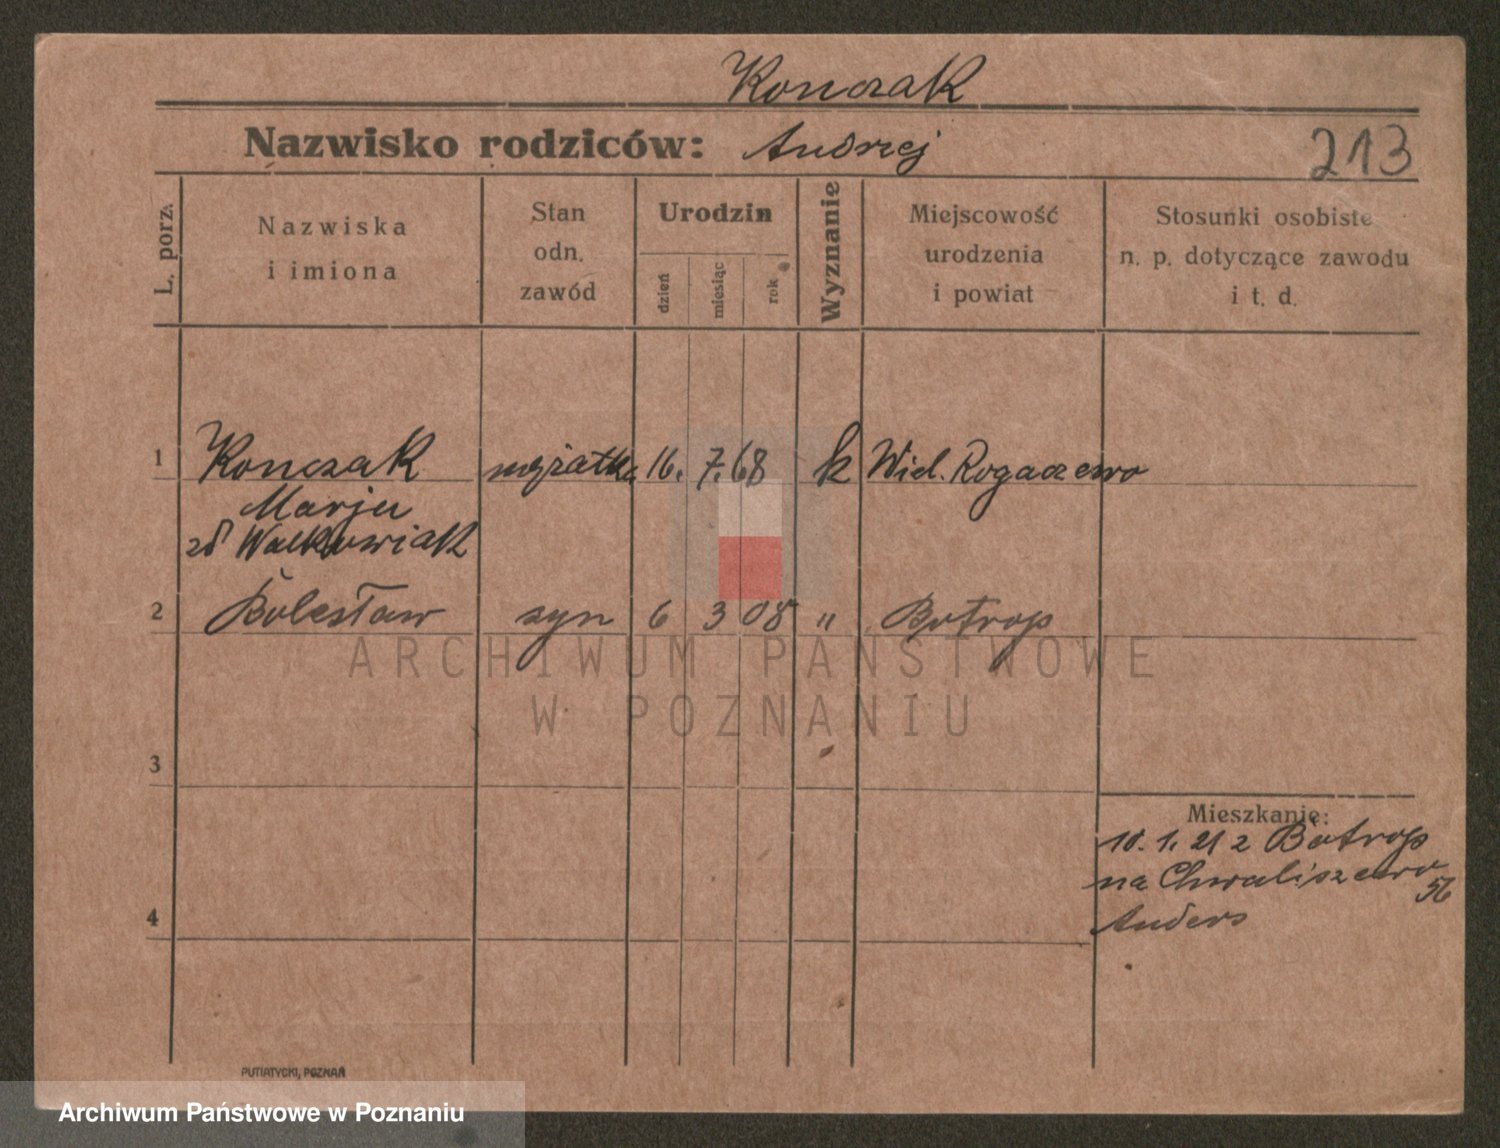 Konczak
Nazwisko rodziców: Andrzej 213
L. porz.
Nazwiska
i imiona
Stan
odn.
zawód
Urodzin
dzień
miesiąc
rok
Wyznanie
Miejscowość
urodzenia
i powiat
Stosunki osobiste
n. p. dotyczące zawodu
i t. d.
1 Konczak mężatka 16. 7. 68 k Wiel. Rogaczewo
Marja
zd Walkowiak
2 Bolesław syn 6 3 08 " Botrop
ARCHIWUM PAŃSTWOWE
W POZNANIU
3
Mieszkanie:
10. 1. 21 z Botrop
na Chwaliszewo
56
Anders
4
PUTIATYCKI, POZNAŃ
Archiwum Państwowe w Poznaniu